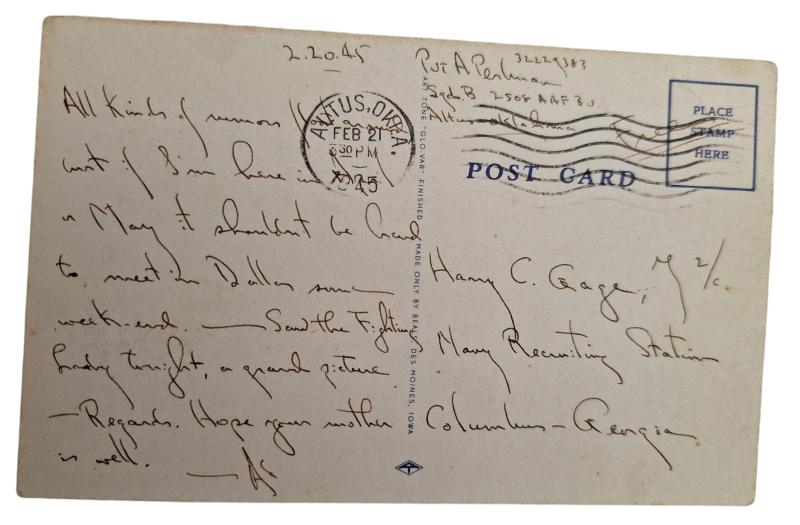 2.20.45
All Kinds of rumors
but if I'm here in
or May it shouldn't be hard
to meet in Dallas some
week-end. — Saw the Fighting
Lady tonight, a grand picture
— Regards. Hope your mother
is well. — Al
ALTUS, OKLA.
FEB 21
30 PM
1945
ART TONE "GLO-VAR" FINISHED MADE ONLY BY BEALS, DES MOINES, IOWA
Pvt A Perlman 32229383
Sqdn. B 2508 AAF BU.
Altus Oklahoma Free
PLACE
STAMP
HERE
POST CARD
Harry C. Gage, Y 2/c
Navy Recruiting Station
Columbus - Georgia